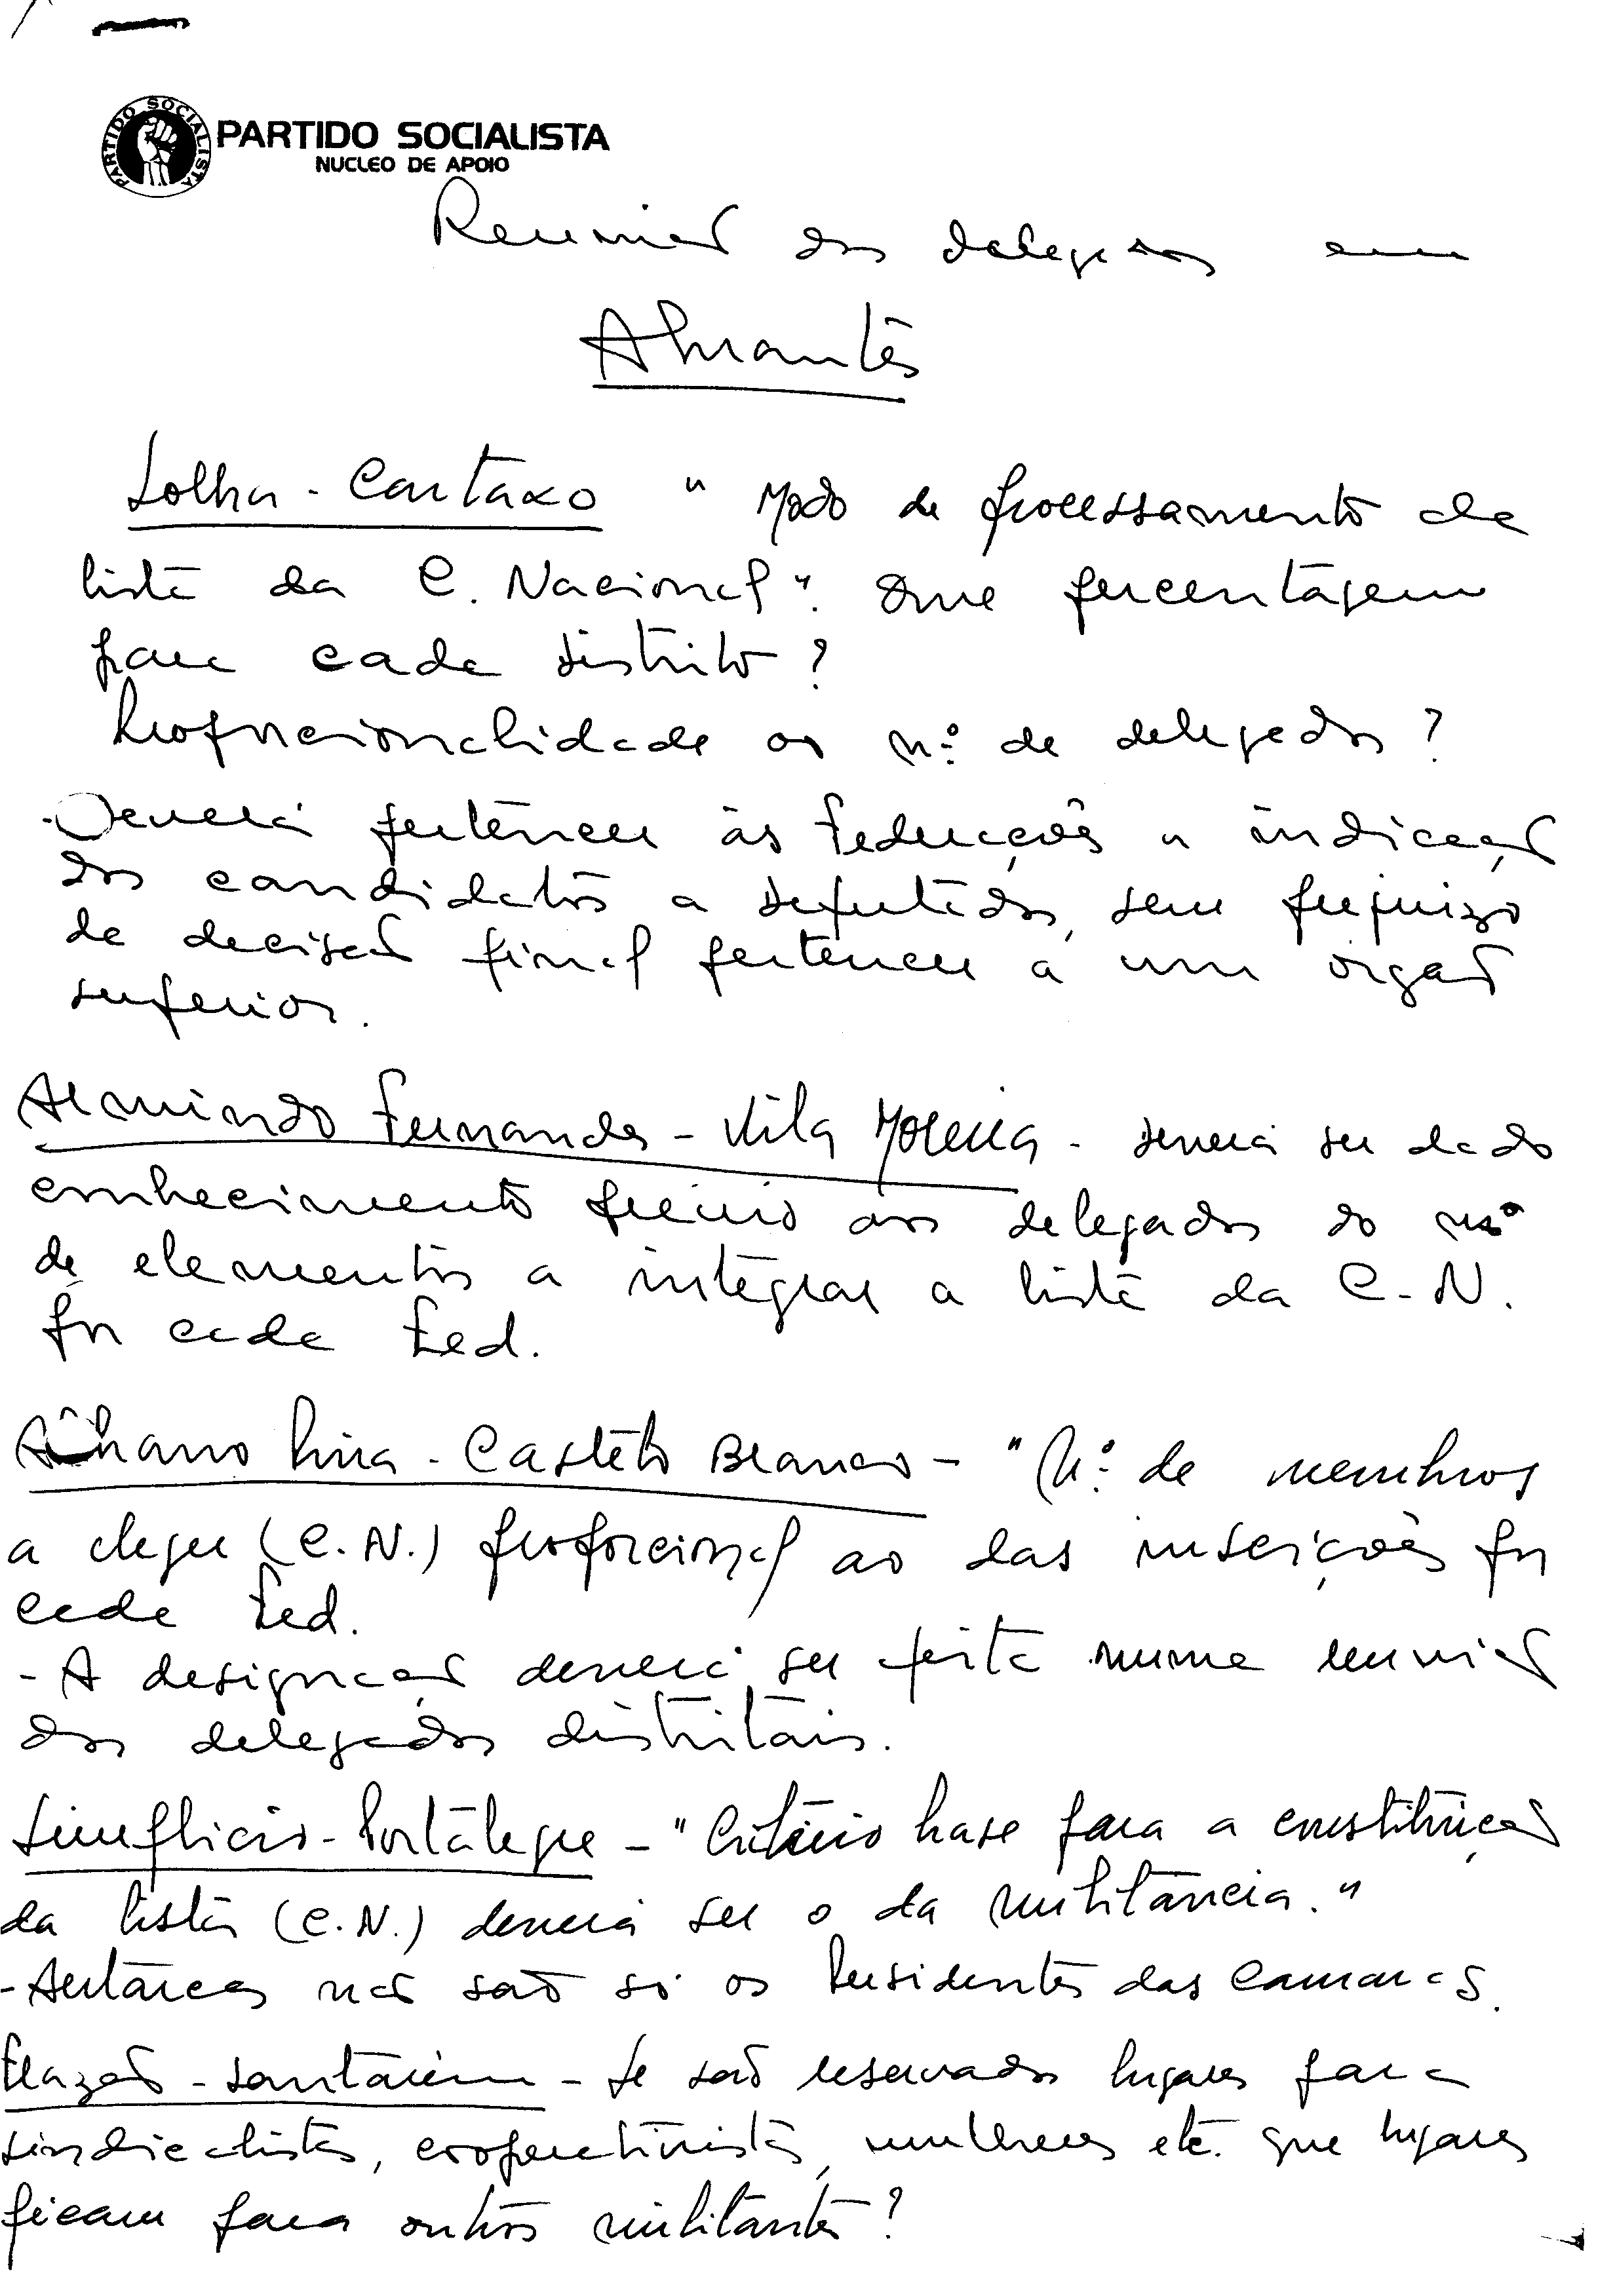 PARTIDO SOCIALISTA
PARTIDO SOCIALISTA
NUCLEO DE APOIO
Reunião dos delegados em
Abrantes
Cartaxo " Modo de processamento da
lista da C. Nacional". Que percentagem
para cada distrito?
Proporcionalidade ao nº de delegados?
- Deverá pertencer às Federações a indicação
dos candidatos a deputados, sem prejuizo
da decisão final pertencer a um orgão
superior.
Armindo Fernandes - Vila Moreira - deverá ser dado
conhecimento prévio aos delegados do nº
de elementos a integrar a lista da C.N.
por cada Fed.
Albano Pina - Castelo Branco - "Nº de membros
a eleger (C.N.) proporcional ao das inscrições por
cada Fed.
- A designação deverá ser feita numa reunião
dos delegados distritais.
Simplicio - Portalegre - "Critério base para a constituição
da lista (C.N.) deverá ser o da militância."
- Autarcas não são só os Presidentes das Camaras.
Frazão - Santarém - Se são reservados lugares para
sindicalistas, cooperativistas, mulheres etc. que lugares
ficam para outros militantes?